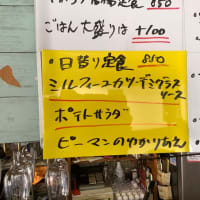 定食 850
ごはん大盛りは +100
・日替り定食 850
ミルフィーユカツ・デミグラス
ソース
ポテトサラダ
ピーマンのゆかりあえ